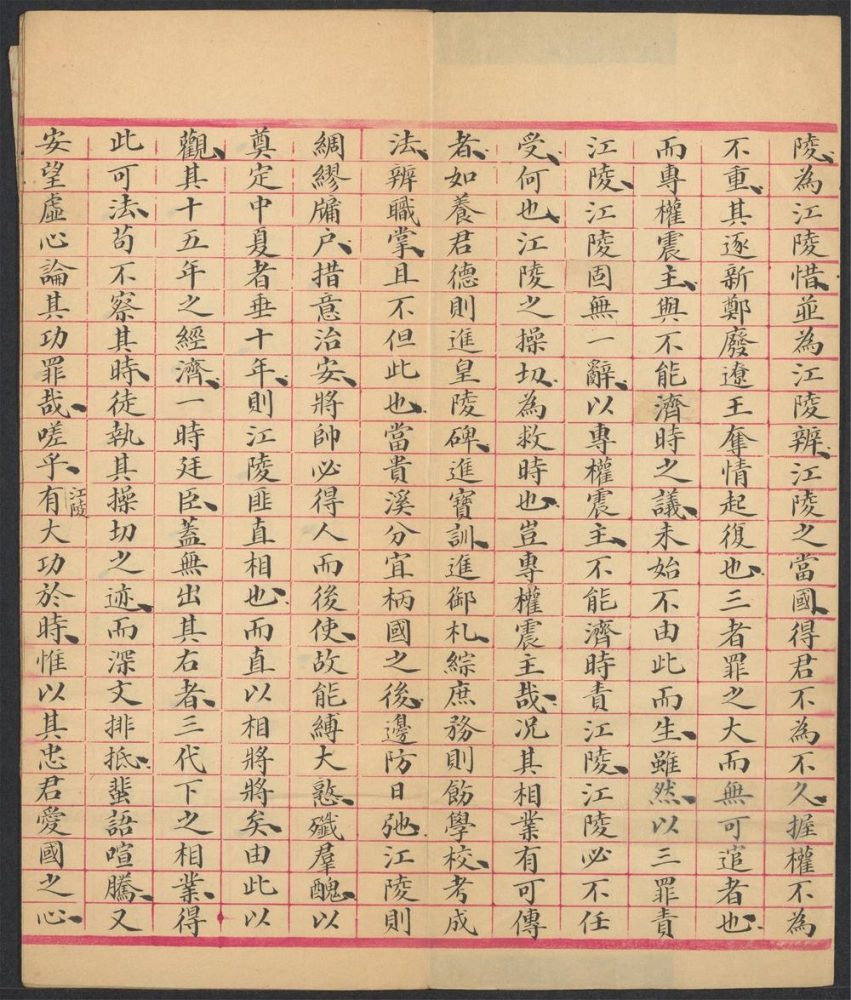 陵、為江陵惜、並為江陵辨、江陵之當國、得君不為不久、握權不為
不重、其逐新鄭廢遼王奪情起復也、三者罪之大而無可逭者也、
而專權震主、與不能濟時之議、未始不由此而生、雖然、以三罪責
江陵、江陵固無一辭、以專權震主、不能濟時責江陵、江陵必不任
受、何也、江陵之操切、為救時也、豈專權震主哉、况其相業有可傳
者、如養君德則進皇陵碑、進寶訓、進御札、綜庶務則飭學校、考成
法、辨職掌、且不但此也、當貴溪分宜柄國之後、邊防日弛、江陵則
綢繆牖户、措意治安、將帥必得人而後使、故能縛大憝、殲羣醜、以
奠定中夏者垂十年、則江陵匪直相也、而直以相將將矣、由此以
觀、其十五年之經濟、一時廷臣、蓋無出其右者、三代下之相業、得
此可法、苟不察其時、徒執其操切之迹、而深文排抵、蜚語喧騰、又
安望虛心論其功罪哉、嗟乎、江陵有大功於時、惟以其忠君愛國之心、